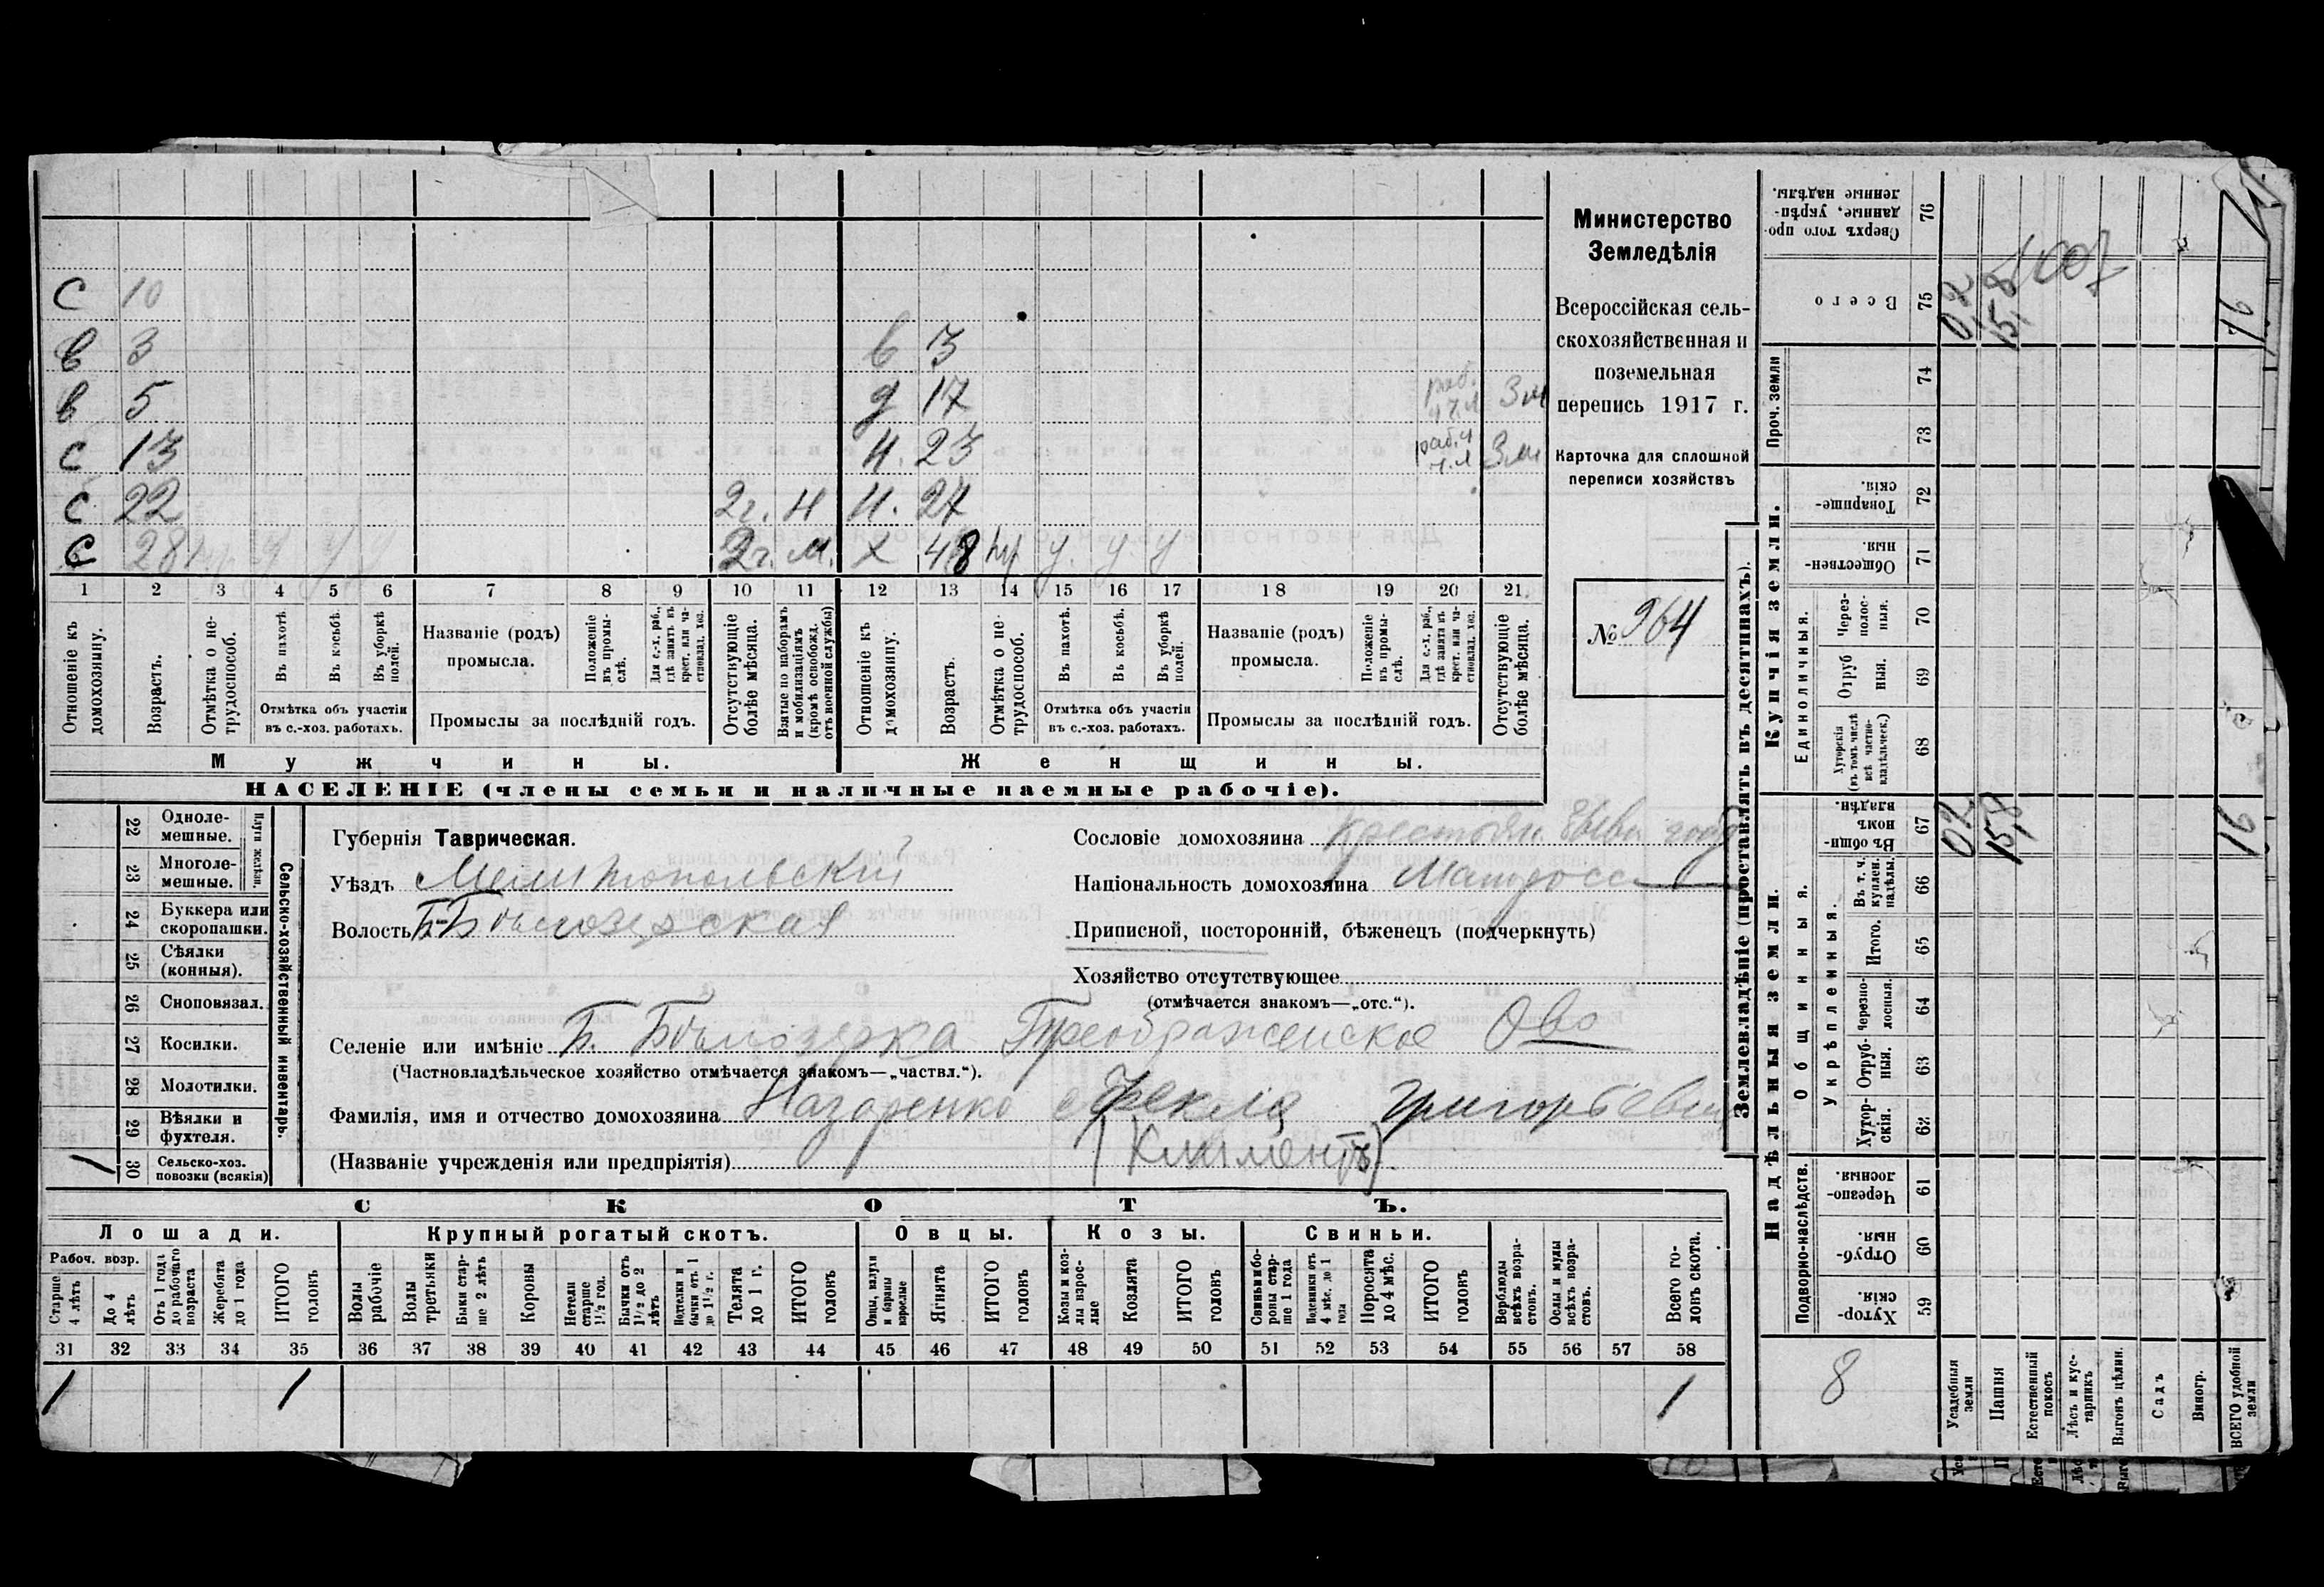 с 10
в 3 в 3
в 5 д 17 раб. ч.л 3 м
с 13 н. 23 раб. ч ч.л 3 м
с 22 2 г. н н. 27
с 28 2 г. м. х 48 у. у. у
1 2 3 4 5 6 7 8 9 10 11 12 13 14 15 16 17 18 19 20 21
Отношеніе къ домохозяину.
Возрастъ.
Отмѣтка о нетрудоспособ.
Въ пахотѣ.
Въ косьбѣ.
Въ уборкѣ полей.
Отмѣтка объ участіи въ с.-хоз. работахъ.
Названіе (родъ) промысла.
Положеніе въ промыслѣ.
Для с.-х. раб., гдѣ занятъ въ крест. или частновлад. хоз.
Промыслы за послѣдній годъ.
Отсутствующіе болѣе мѣсяца.
Взятые по наборамъ и мобилизаціямъ (кромѣ освобожд. отъ военной службы)
Отношеніе къ домохозяину.
Возрастъ.
Отмѣтка о нетрудоспособ.
Въ пахотѣ.
Въ косьбѣ.
Въ уборкѣ полей.
Отмѣтка объ участіи въ с.-хоз. работахъ.
Названіе (родъ) промысла.
Положеніе въ промыслѣ.
Для с.-х. раб., гдѣ занята въ крест. или частновлад. хоз.
Промыслы за послѣдній годъ.
Отсутствующіе болѣе мѣсяца.
Мужчины. Женщины.
НАСЕЛЕНІЕ (члены семьи и наличные наемные рабочіе).
Министерство
Земледѣлія
Всероссійская сель-
скохозяйственная и
поземельная
перепись 1917 г.
Карточка для сплошной
переписи хозяйствъ
№ 964
22 Однолемешные.
23 Многолемешные.
Плуги желѣзн.
24 Буккера или скоропашки.
25 Сѣялки (конныя).
26 Сноповязал.
27 Косилки.
28 Молотилки.
29 Вѣялки и фухтеля.
1 30 Сельско-хоз. повозки (всякія)
Сельско-хозяйственный инвентарь.
Губернія Таврическая.
Уѣздъ Мелитопольскій
Волость Б-Бѣлозерская
Сословіе домохозяина
Національность домохозяина Малоросс
Приписной, посторонній, бѣженецъ (подчеркнуть)
Хозяйство отсутствующее
(отмѣчается знакомъ—„отс.“).
Селеніе или имѣніе Б. Бѣлозерка Преображенское Ово
(Частновладѣльческое хозяйство отмѣчается знакомъ—„частвл.“).
Фамилія, имя и отчество домохозяина Назаренко Фекла Григорьевна
(Названіе учрежденія или предпріятія) (Климентъ)
СКОТЪ.
Лошади. Крупный рогатый скотъ. Овцы. Козы. Свиньи.
Рабоч. возр.
Старше 4 лѣтъ
До 4 лѣтъ
Отъ 1 года до рабочаго возраста
Жеребята до 1 года
ИТОГО головъ
Волы рабочіе
Волы третьяки
Быки старше 2 лѣтъ
Коровы
Нетели старше 1½ год.
Бычки отъ 1½ до 2 лѣтъ
Подтелки и бычки отъ 1 до 1½ г.
Телята до 1 г.
ИТОГО головъ
Овцы, валухи и бараны взрослые
Ягнята
ИТОГО головъ
Козы и козлы взрослые
Козлята
ИТОГО головъ
Свиньи и боровы старше 1 года
Подсвинки отъ 4 мѣс. до 1 года
Поросята до 4 мѣс.
ИТОГО головъ
Верблюды всѣхъ возрастовъ.
Ослы и мулы всѣхъ возрастовъ.
Всего головъ скота.
31 32 33 34 35 36 37 38 39 40 41 42 43 44 45 46 47 48 49 50 51 52 53 54 55 56 57 58
1 1 1
Землевладѣніе (проставлять въ десятинахъ).
Сверхъ того проданные, укрѣпленные надѣлы. 76
Всего 75 0,2 15,8
Проч. земли 74 73
Купчія земли.
Товарищескія. 72
Общественныя. 71
Единоличныя.
Черезполосныя. 70
Отрубныя. 69
Хуторскія (въ томъ числѣ всѣ частновладѣльческ.) 68
Надѣльныя земли.
Общинныя.
Въ общинномъ владѣн. 67 02 15,8 16
Укрѣпленныя.
Въ т. ч. куплен. надѣлы. 66
Итого. 65
Черезполосныя. 64
Отрубныя. 63
Хуторскія. 62
Подворно-наслѣдств.
Черезполосныя. 61
Отрубныя. 60
Хуторскія. 59
8
Усадебныя земли
Пашня
Естественный покосъ
Лѣсъ и кустарникъ
Выгонъ цѣлин.
Садъ
Виногр.
ВСЕГО удобной земли